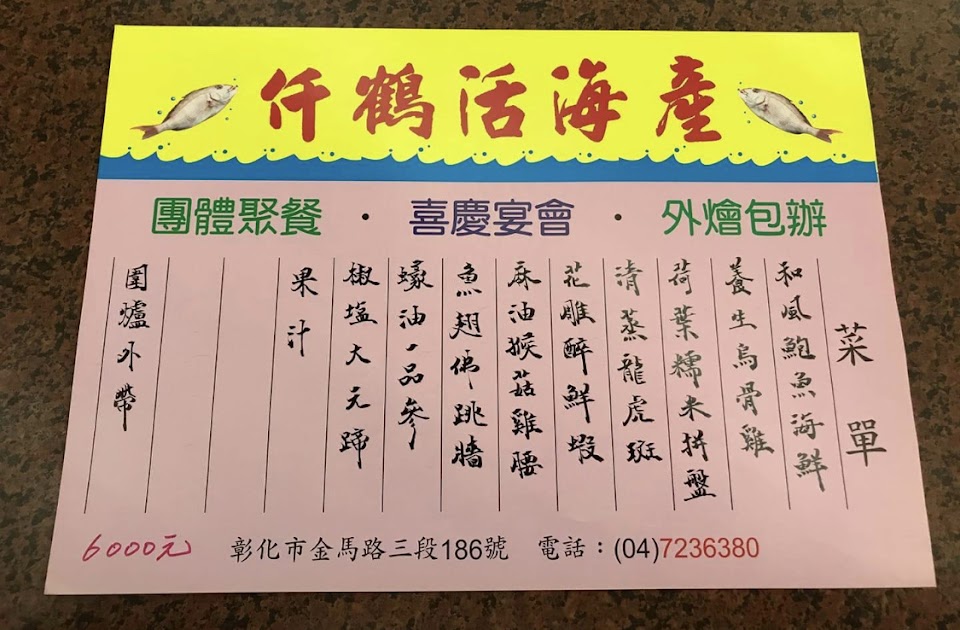 仟鶴活海產
團體聚餐 · 喜慶宴會 · 外燴包辦
菜單
和風鮑魚海鮮
養生烏骨雞
荷葉糯米拼盤
清蒸龍虎斑
花雕醉鮮蝦
麻油猴菇雞腰
魚翅佛跳牆
蠔油一品參
椒塩大元蹄
果汁
圍爐外帶
6000元
彰化市金馬路三段186號 電話：(04)7236380